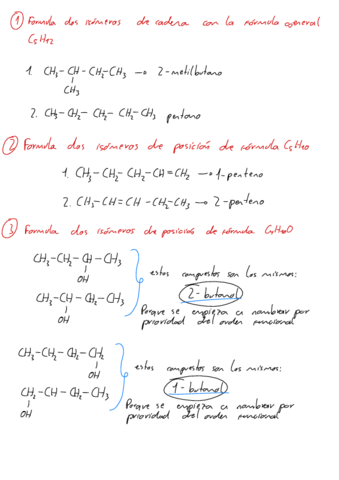 ① Formula dos isómeros de cadena con la fórmula general
C₅H₁₂
1. CH₃-CH-CH₂-CH₃ → 2-metilbutano
CH₃
2. CH₃-CH₂-CH₂-CH₂-CH₃ pentano
② Formula dos isómeros de posición de fórmula C₅H₁₀
1. CH₃-CH₂-CH₂-CH=CH₂ → 1-penteno
2. CH₃-CH=CH-CH₂-CH₃ → 2-penteno
③ Formula dos isómeros de posición de fórmula
CH₃-CH₂-CH-CH₃
OH
estos compuestos son los mismos:
2-butanol
CH₃-CH-CH₂-CH₃
OH
Porque se empieza a nombrar por
prioridad del orden funcional
CH₃-CH₂-CH₂-CH₂
OH
estos compuestos son los mismos:
1-butanol
CH₂-CH-CH₂-CH₃
OH
Porque se empieza a nombrar por
prioridad del orden funcional